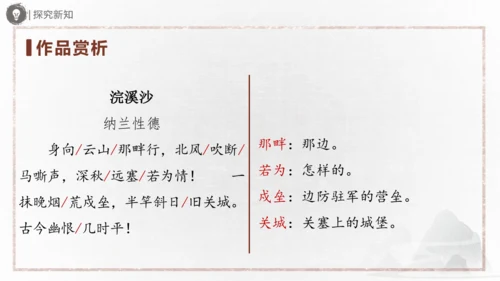 探究新知
作品赏析
浣溪沙
纳兰性德
身向/云山/那畔行，北风/吹断/
马嘶声，深秋/远塞/若为情！ 一
抹晚烟/荒戍垒，半竿斜日/旧关城。
古今幽恨/几时平！
那畔：那边。
若为：怎样的。
戍垒：边防驻军的营垒。
关城：关塞上的城堡。